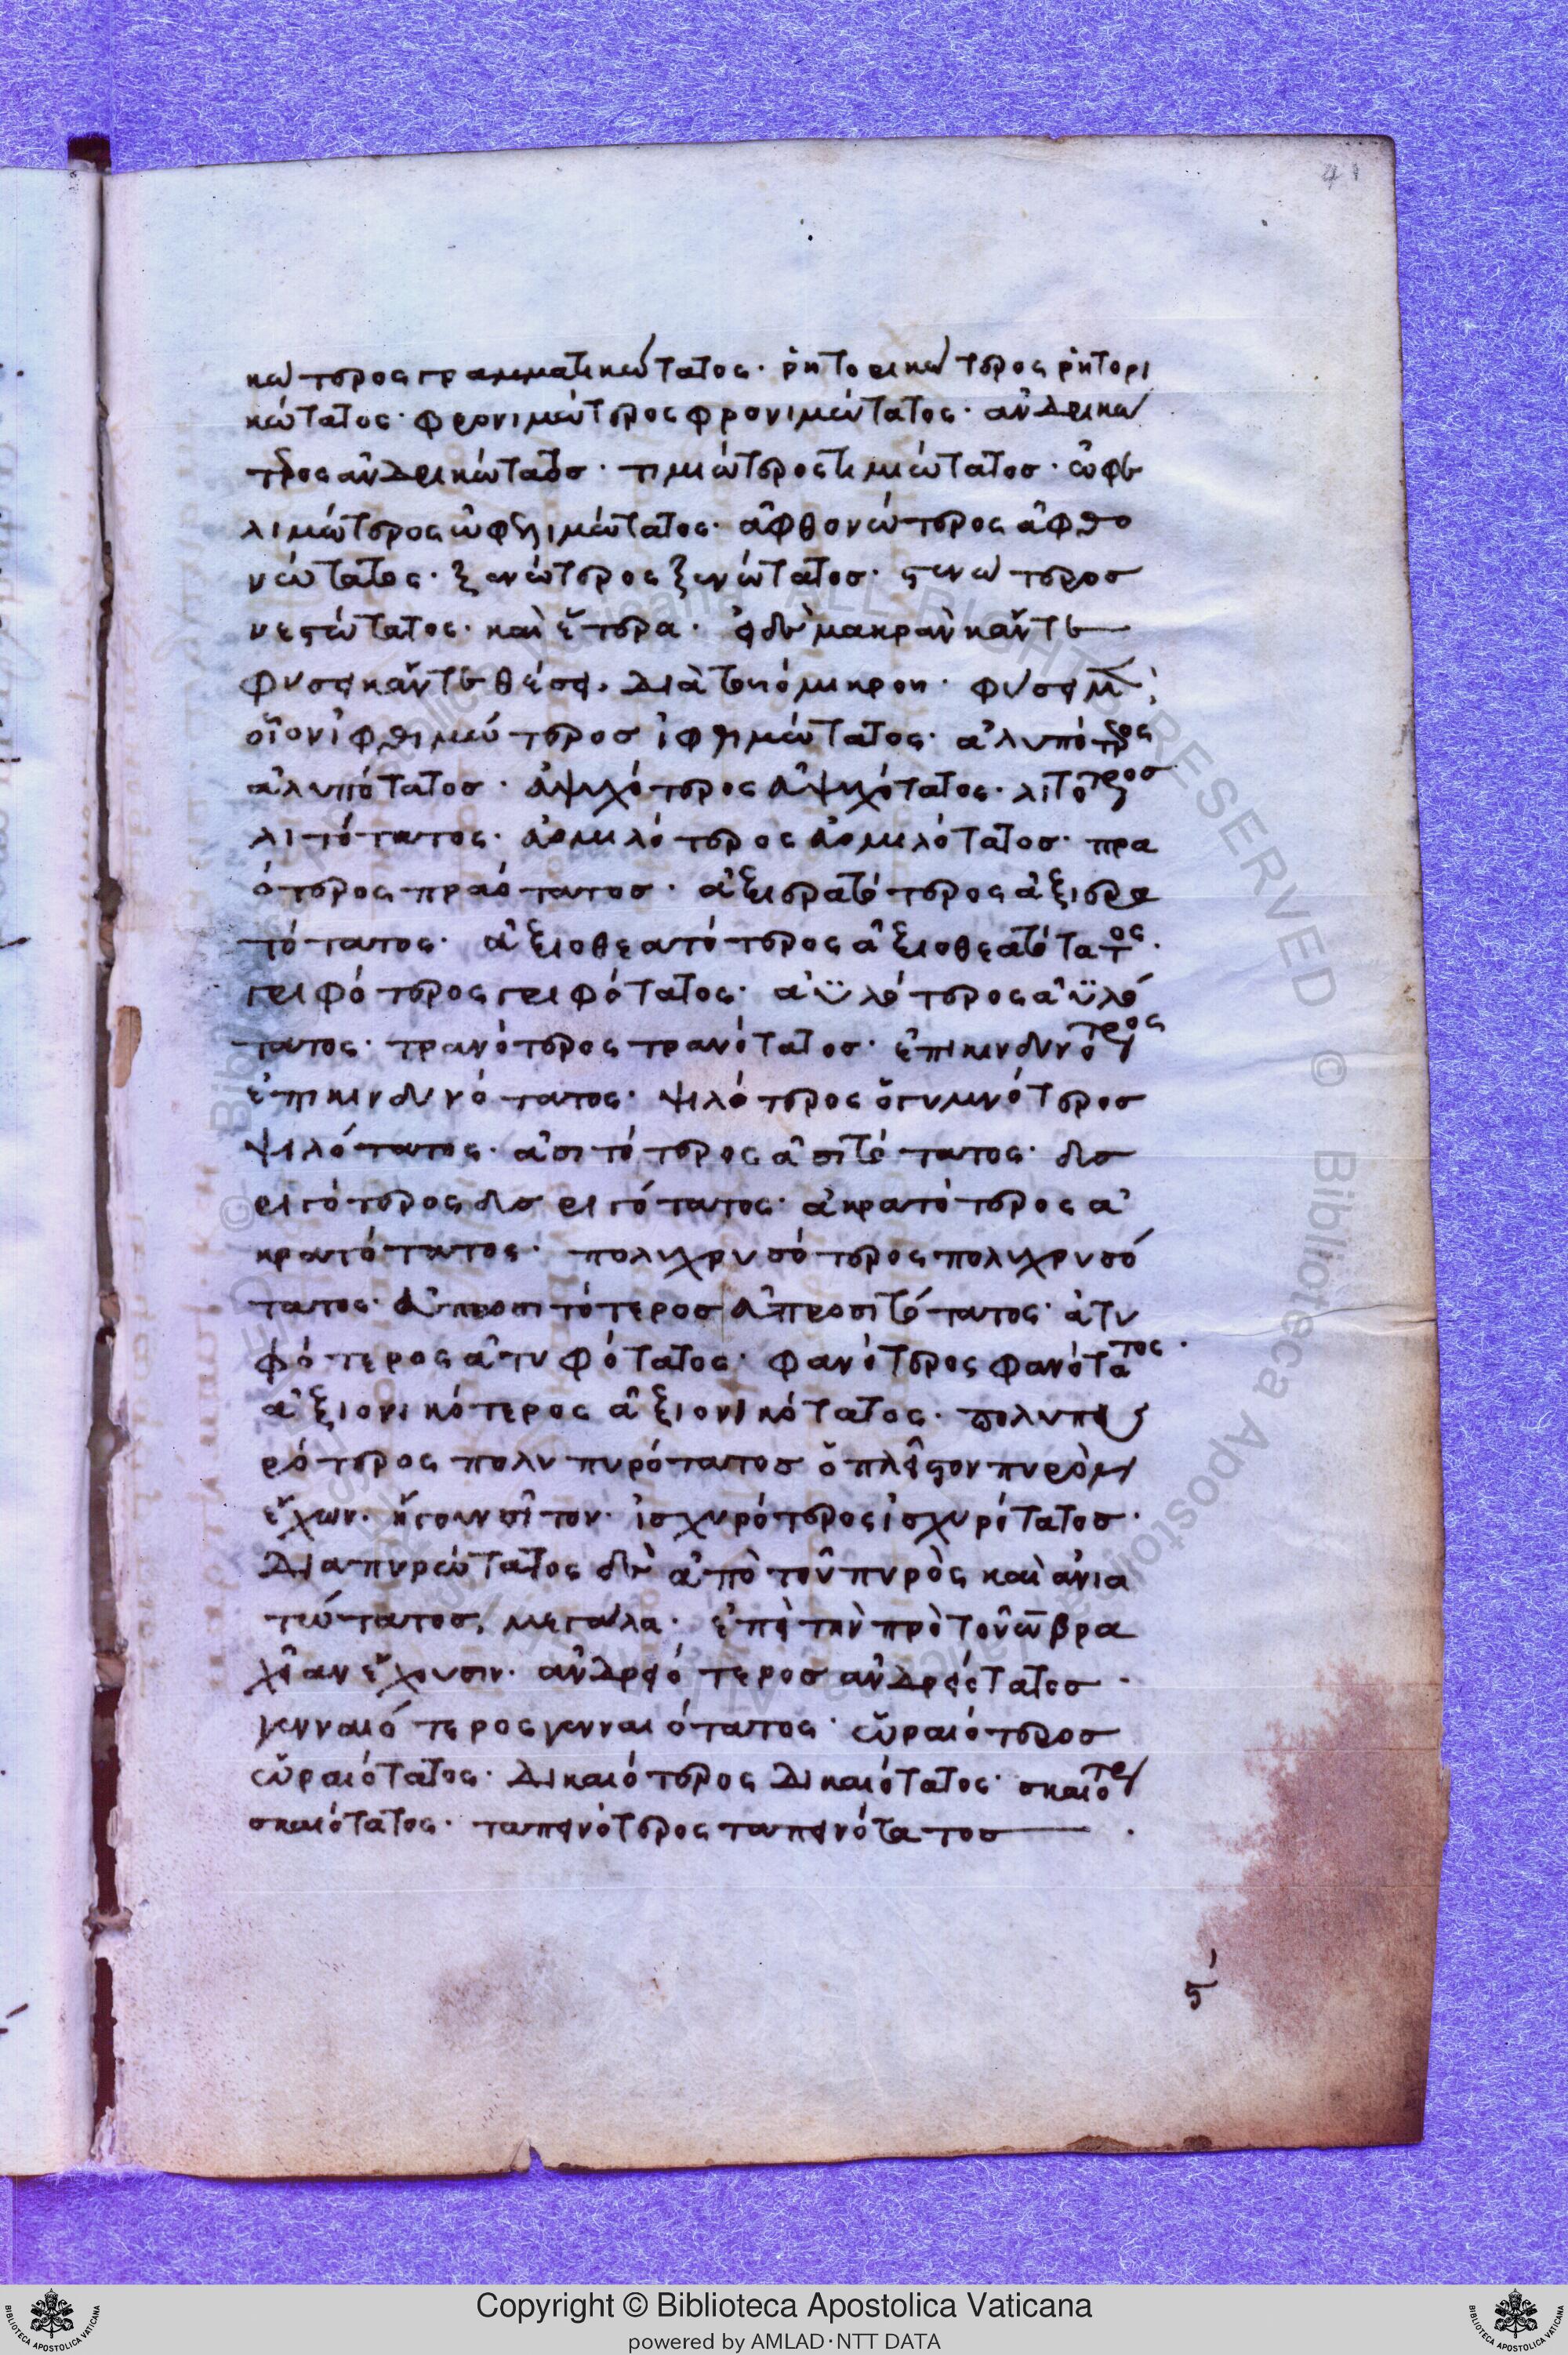 41
κώτερος γραμματικώτατος· ῥητορικώτερος ῥητορι
κώτατος· φρονιμώτερος φρονιμώτατος· ἀνδρικώ
τερος ἀνδρικώτατος· τιμιώτερος τιμιώτατος· ὠφε
λιμώτερος ὠφελιμώτατος· ἀφθονώτερος ἀφθο
νώτατος· ξενώτερος ξενώτατος· στενώτερος
στενώτατος· καὶ ἕτερα· εἰ δὲ μακρὰν κἄντε
φύσει κἄντε θέσει, διὰ τοῦ ο μικροῦ· φύσει μὲν
οἷον ἰφθιμώτερος ἰφθιμώτατος· ἀλυπότερος
ἀλυπότατος· ἀψυχότερος ἀψυχότατος· λιτότερος
λιτότατος· πρα
ότερος πραότατος· ἀξιερατότερος ἀξιερα
τότατος· ἀξιοθεατότερος ἀξιοθεατότατος·
γριφότερος γριφότατος· ἀϋλότερος ἀϋλό
τατος· τρανότερος τρανότατος· ἐπικινδυνότερος
ἐπικινδυνότατος· ψιλότερος ὁ γυμνότερος
ψιλότατος· ἀσιτότερος ἀσιτότατος· δυσ
ριγότερος δυσριγότατος· ἀκρατότερος ἀ
κρατότατος· πολυχρυσότερος πολυχρυσό
τατος· ἀπροσιτότερος ἀπροσιτότατος· ἀτυ
φότερος ἀτυφότατος· φανότερος φανότατος·
ἀξιονικότερος ἀξιονικότατος· πολυπυ
ρότερος πολυπυρότατος ὁ πλεῖστον πυρὸν
ἔχων· ἤγουν σῖτον· ἰσχυρότερος ἰσχυρότατος·
διαπυρώτατος δὲ ἀπὸ τοῦ πυρὸς καὶ ἀνια
τώτατος, μεγάλα· ἐπεὶ τὴν πρὸ τοῦ ω βρα
χεῖαν ἔχουσιν· ἀνδρειότερος ἀνδρειότατος·
γενναιότερος γενναιότατος· ὡραιότερος
ὡραιότατος· δικαιότερος δικαιότατος· σκαιότερος
σκαιότατος· ταπεινότερος ταπεινότατος
Copyright © Biblioteca Apostolica Vaticana
powered by AMLAD·NTT DATA